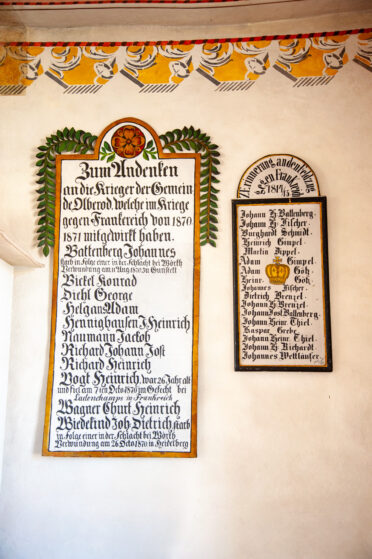 Zum Andenken
an die Krieger der Gemein
de Oberod. welche im Kriege
gegen Frankreich von 1870.
1871 mitgewirkt haben.
Battenberg Johannes
starb in Folge einer in der Schlacht bei Wörth
Verwundung am Aug. 1870. zu Gunstett
Bickel Konrad
Diehl George
Helgan Adam
Hennighausen J Heinrich
Naumann Jacob
Richard Johann Jost
Richard Heinrich
Vogt Heinrich, war 26 Jahr alt
und fiel am 7ten Octo 1870 im Gefecht bei
Ladenchamps in Frankreich
Wagner Chunt Heinrich
Wiedekind Joh. Dietrich starb
in Folge einer in der Schlacht bei Wörth
Verwundung am 26 Octo 1870 in Heidelberg
Z. Erinnerung an den Feldzug
gegen Frankreich
1814/15
Johann H. Battenberg.
Johann H. Fischer.
Burghardt Schmidt.
Heinrich Gimpel.
Martin Dippel.
Adam Gimpel.
Adam Göh.
Heinr. Göh.
Johannes Fischer.
Dietrich Brenzel.
Johann H. Brenzel.
Johann Jost Battenberg.
Johann Heinr. Thiel.
Kaspar Grebe.
Johann Heinr. Thiel.
Johann H. Richardt.
Johannes Wettlaufer.